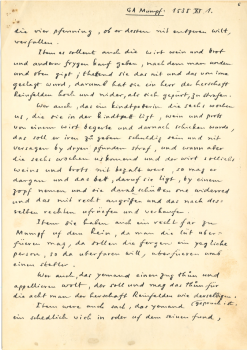 GA Mumpf: 1535 XI 1.
6
die vier pfenning, ob er dosten mit entgren wilt,
verfallen.
Item es sollent auch die wirt wein und brot
und anderen frygen kauf gaben, nachdem man anden
und oben gipt; thetend sie das nit und das von inen
geclagt wurd, darumb hat sie von herr der herrschaft
Reinfelden hoch und nider, als sich gepürt, zu strafen.
Wer auch, das ein kindtpeterin die sechs wochen
us, die sie in der kindtpett ligt, wein und prott
von einem wirt begerte und darnach schicken wurde,
das soll er iren zu geben schuldig sein und nit
versagen by dryen pfunden straf, und wann aber
die sechs wochen uskomend und der wirt sollichs
weins und brots mit bezalt were, so mag er
dargan und das bet, daruf sie ligt, by einem
zopf nemen und sie darab schüben one widerred
und das mit recht angriffen und das nach des-
selben rechten usriefen und verkaufen.
Item sie haben auch ein recht far zu
Mumpf uf dem Rein, da man die lüt über-
füren mag, da sollen die fergen ein yegliche
person, so da überfaren will, überfüren umb
einen stebler.
Wer auch das yemand einer zug thün und
appellieren wolt, der soll und mag das thün für
die acht man der herrschaft Reinfelden wie derselbigen
Item were auch sach, das yemand
ein schedlich vich in oder uf dem sinen fund,